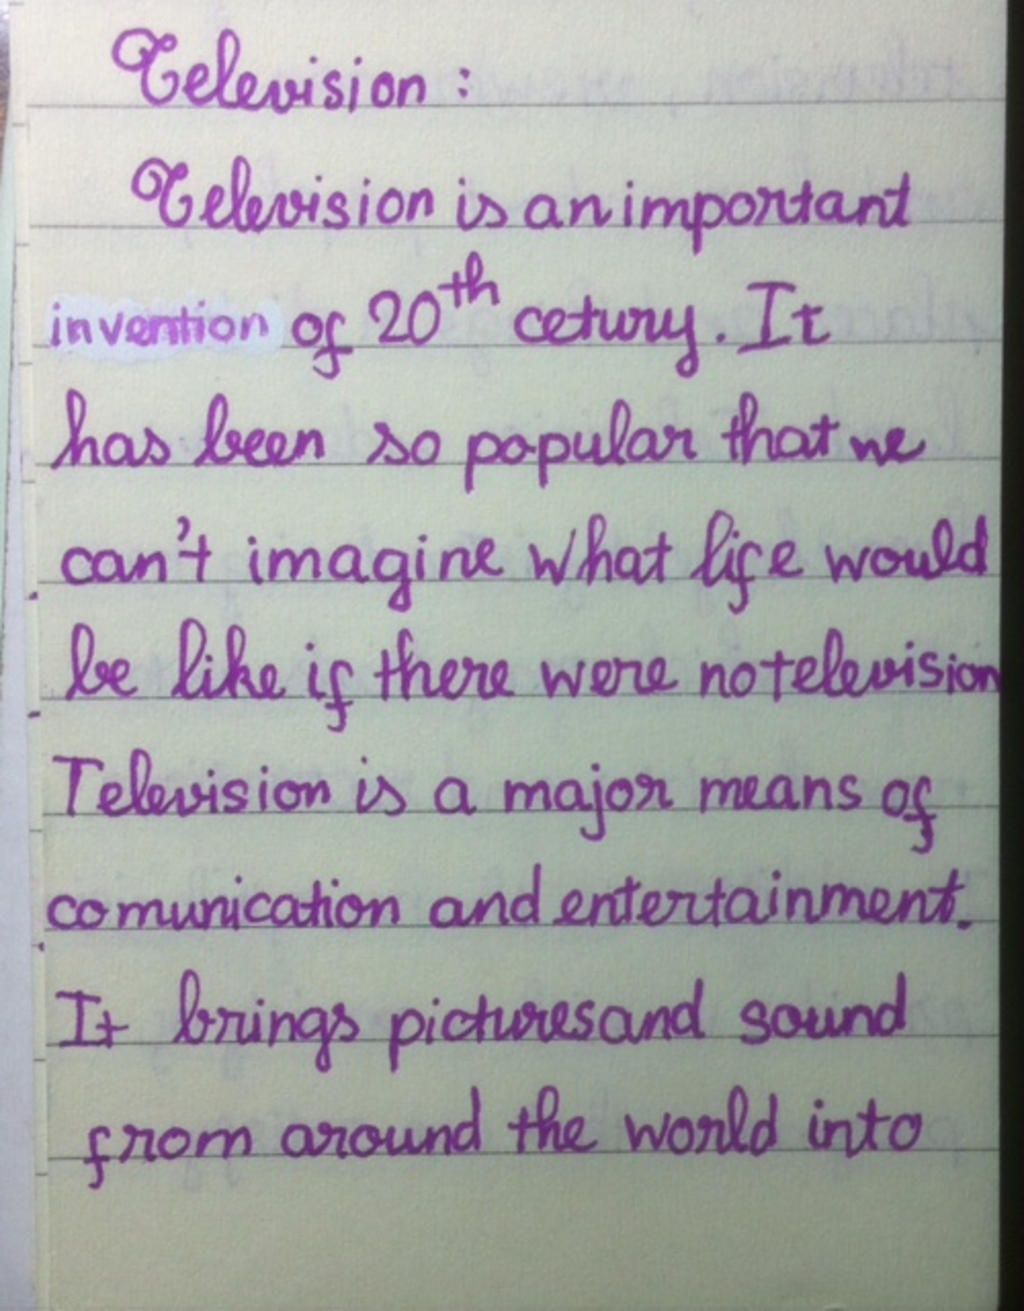 Television :
Television is an important
invention of 20th cetury. It
has been so popular that we
can't imagine what life would
be like if there were no television
Television is a major means of
comunication and entertainment.
It brings pictures and sound
from around the world into